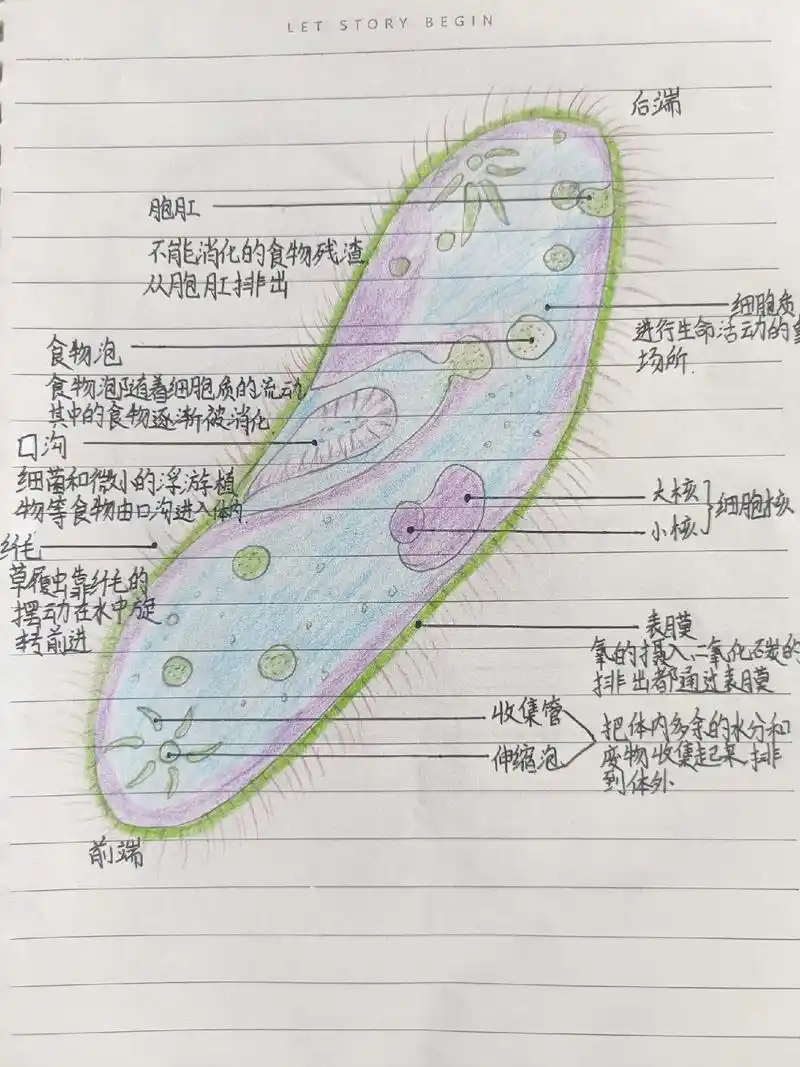 LET STORY BEGIN
后端
胞肛
不能消化的食物残渣
从胞肛排出
细胞质
进行生命活动的
场所.
食物泡
食物泡随着细胞质的流动
其中的食物逐渐被消化
口沟
细菌和微小的浮游植
物等食物由口沟进入体内
大核
小核
细胞核
纤毛
草履虫靠纤毛的
摆动在水中旋
转前进
表膜
氧的摄入、二氧化碳的
排出都通过表膜
收集管
伸缩泡
把体内多余的水分和
废物收集起来,排
到体外
前端